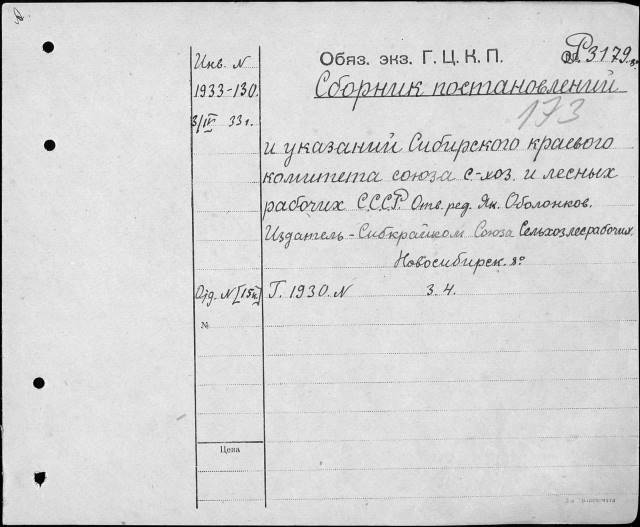 Инв. N
1933-130.
3/III 33г.
Обяз. экз. Г. Ц. К. П.
Р3179
Сборник постановлений
173
и указаний Сибирского краевого
комитета союза с-хоз. и лесных
рабочих С.С.С.Р. Отв. ред. Ян. Оболонков.
Издатель - Сибкрайком Союза Сельхозлесрабочих.
Новосибирск. 8°
Отд. N [15к.] Г. 1930. N 3. 4.
№
Цена